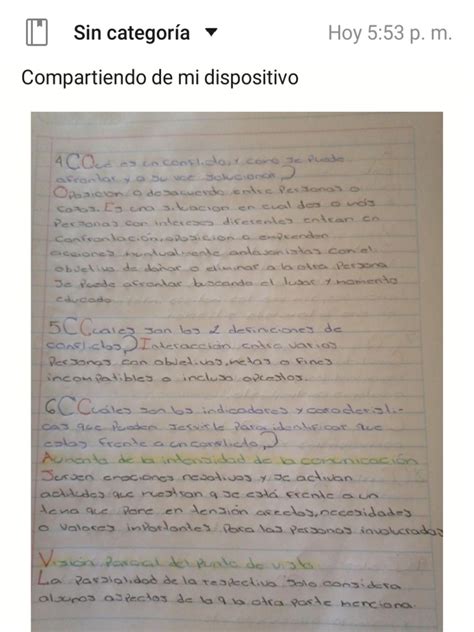 Sin categoría ▼ Hoy 5:53 p. m.
Compartiendo de mi dispositivo
4 ¿Qué es un conflicto, y como se puede
afrontar y a su vez solucionar?
Oposicion o desacuerdo entre Personas o
cosas. Es una situacion en cual dos o más
Personas con intereses diferentes entran en
Confrontación, oposicion o emprenden
acciones mutualmente antagonistas con el
objetivo de dañar o eliminar a la otra Persona
Se Puede afrontar buscando el lugar y momento
educado
5 ¿Cuales son los 2 definiciones de
conflictos? Interacción entre varios
Personas con objetivos, metas o fines
incompatibles o incluso opuestos.
6 ¿Cuáles son los indicadores y caracterist-
cas que Pueden servirte Para identificar que
estas frente a un conflicto?
Aumento de la intensidad de la comunicación
Surgen emociones negativas y se activan
actitudes que muestran q se está frente a un
tema que Pone en tensión afectos, necesidades
o valores importantes Para las Personas involucradas
Visión Parcial del punto de vista
La Parsialidad de la respectiva Solo considera
algunos aspectos de lo q la otra parte menciona.